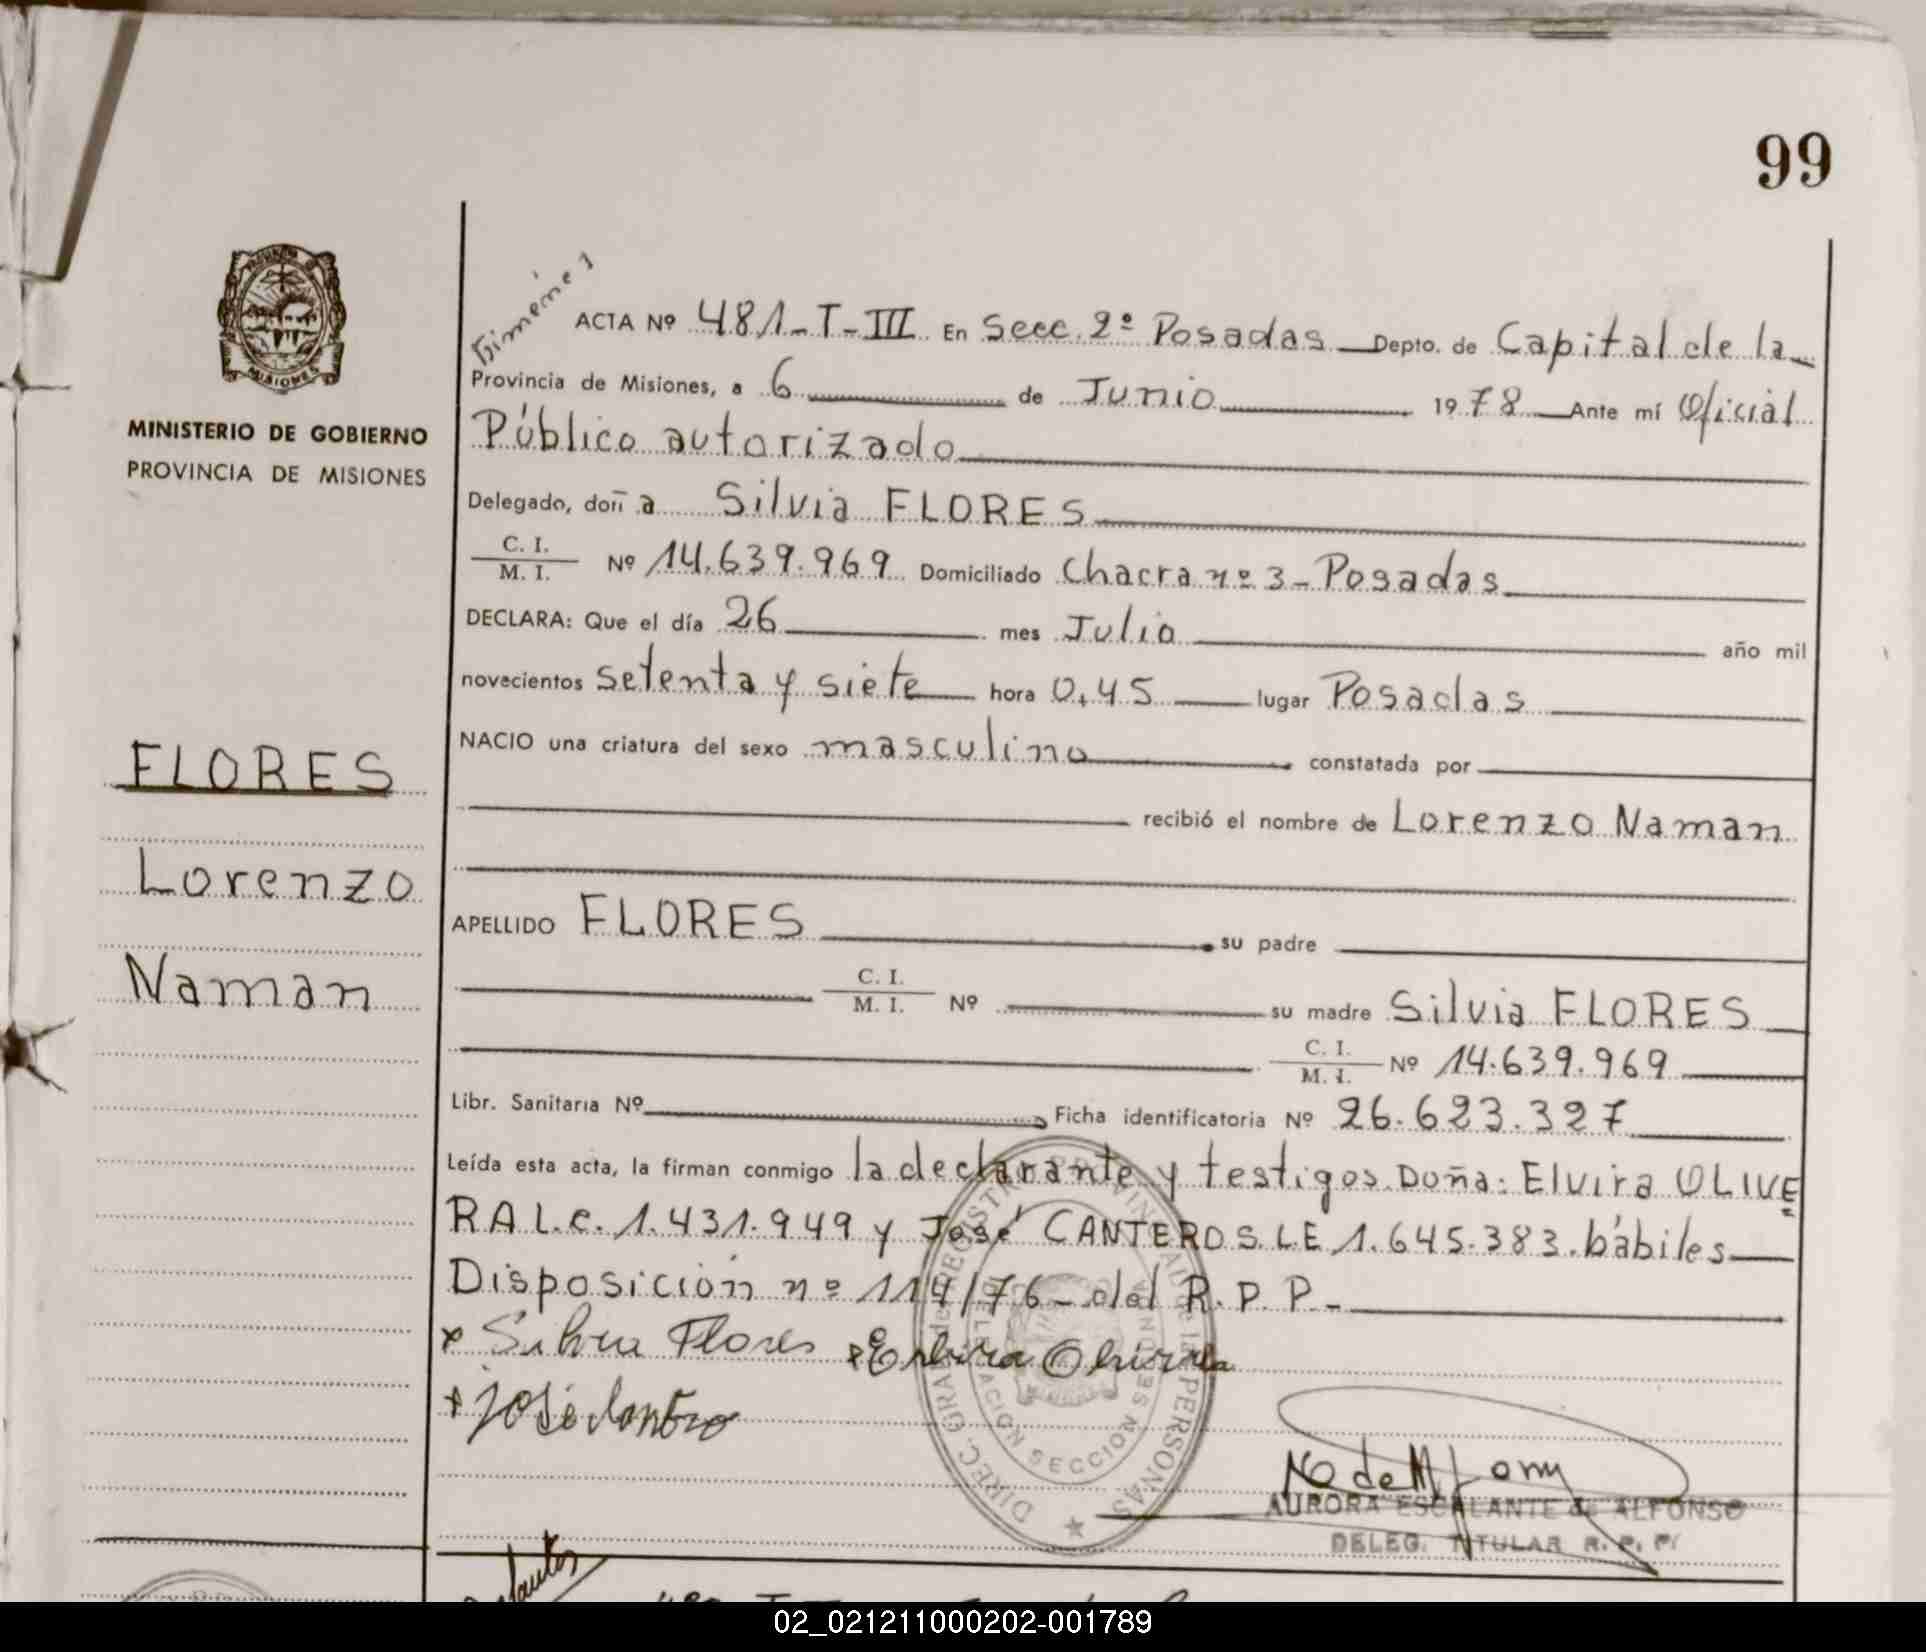 99
Gimenez
ACTA Nº 481-T-III En Secc. 2º Posadas Depto. de Capital de la
Provincia de Misiones, a 6 de Junio 1978 Ante mí Oficial
Público autorizado
MINISTERIO DE GOBIERNO
PROVINCIA DE MISIONES
Delegado, doña Silvia FLORES
C. I.
M. I. Nº 14.639.969 Domiciliado Chacra nº 3-Posadas
DECLARA: Que el día 26 mes Julio año mil
novecientos setenta y siete hora 0,45 lugar Posadas
FLORES
NACIO una criatura del sexo masculino constatada por
recibió el nombre de Lorenzo Naman
Lorenzo
APELLIDO FLORES su padre
Naman
C. I.
M. I. Nº su madre Silvia FLORES
C. I.
M. I. Nº 14.639.969
Libr. Sanitaria Nº Ficha identificatoria Nº 26.623.327
Leída esta acta, la firman conmigo la declarante y testigos Doña: Elvira OLIVE
RA L.C. 1.431.949 y José CANTEROS L E 1.645.383. hábiles
Disposición nº 114/76- del R. P. P.-
x Silvia Flores x Elvira Olivera
x José Cantero
AURORA ESCALANTE de ALFONSO
DELEG. TITULAR R. P. P.
02_021211000202-001789